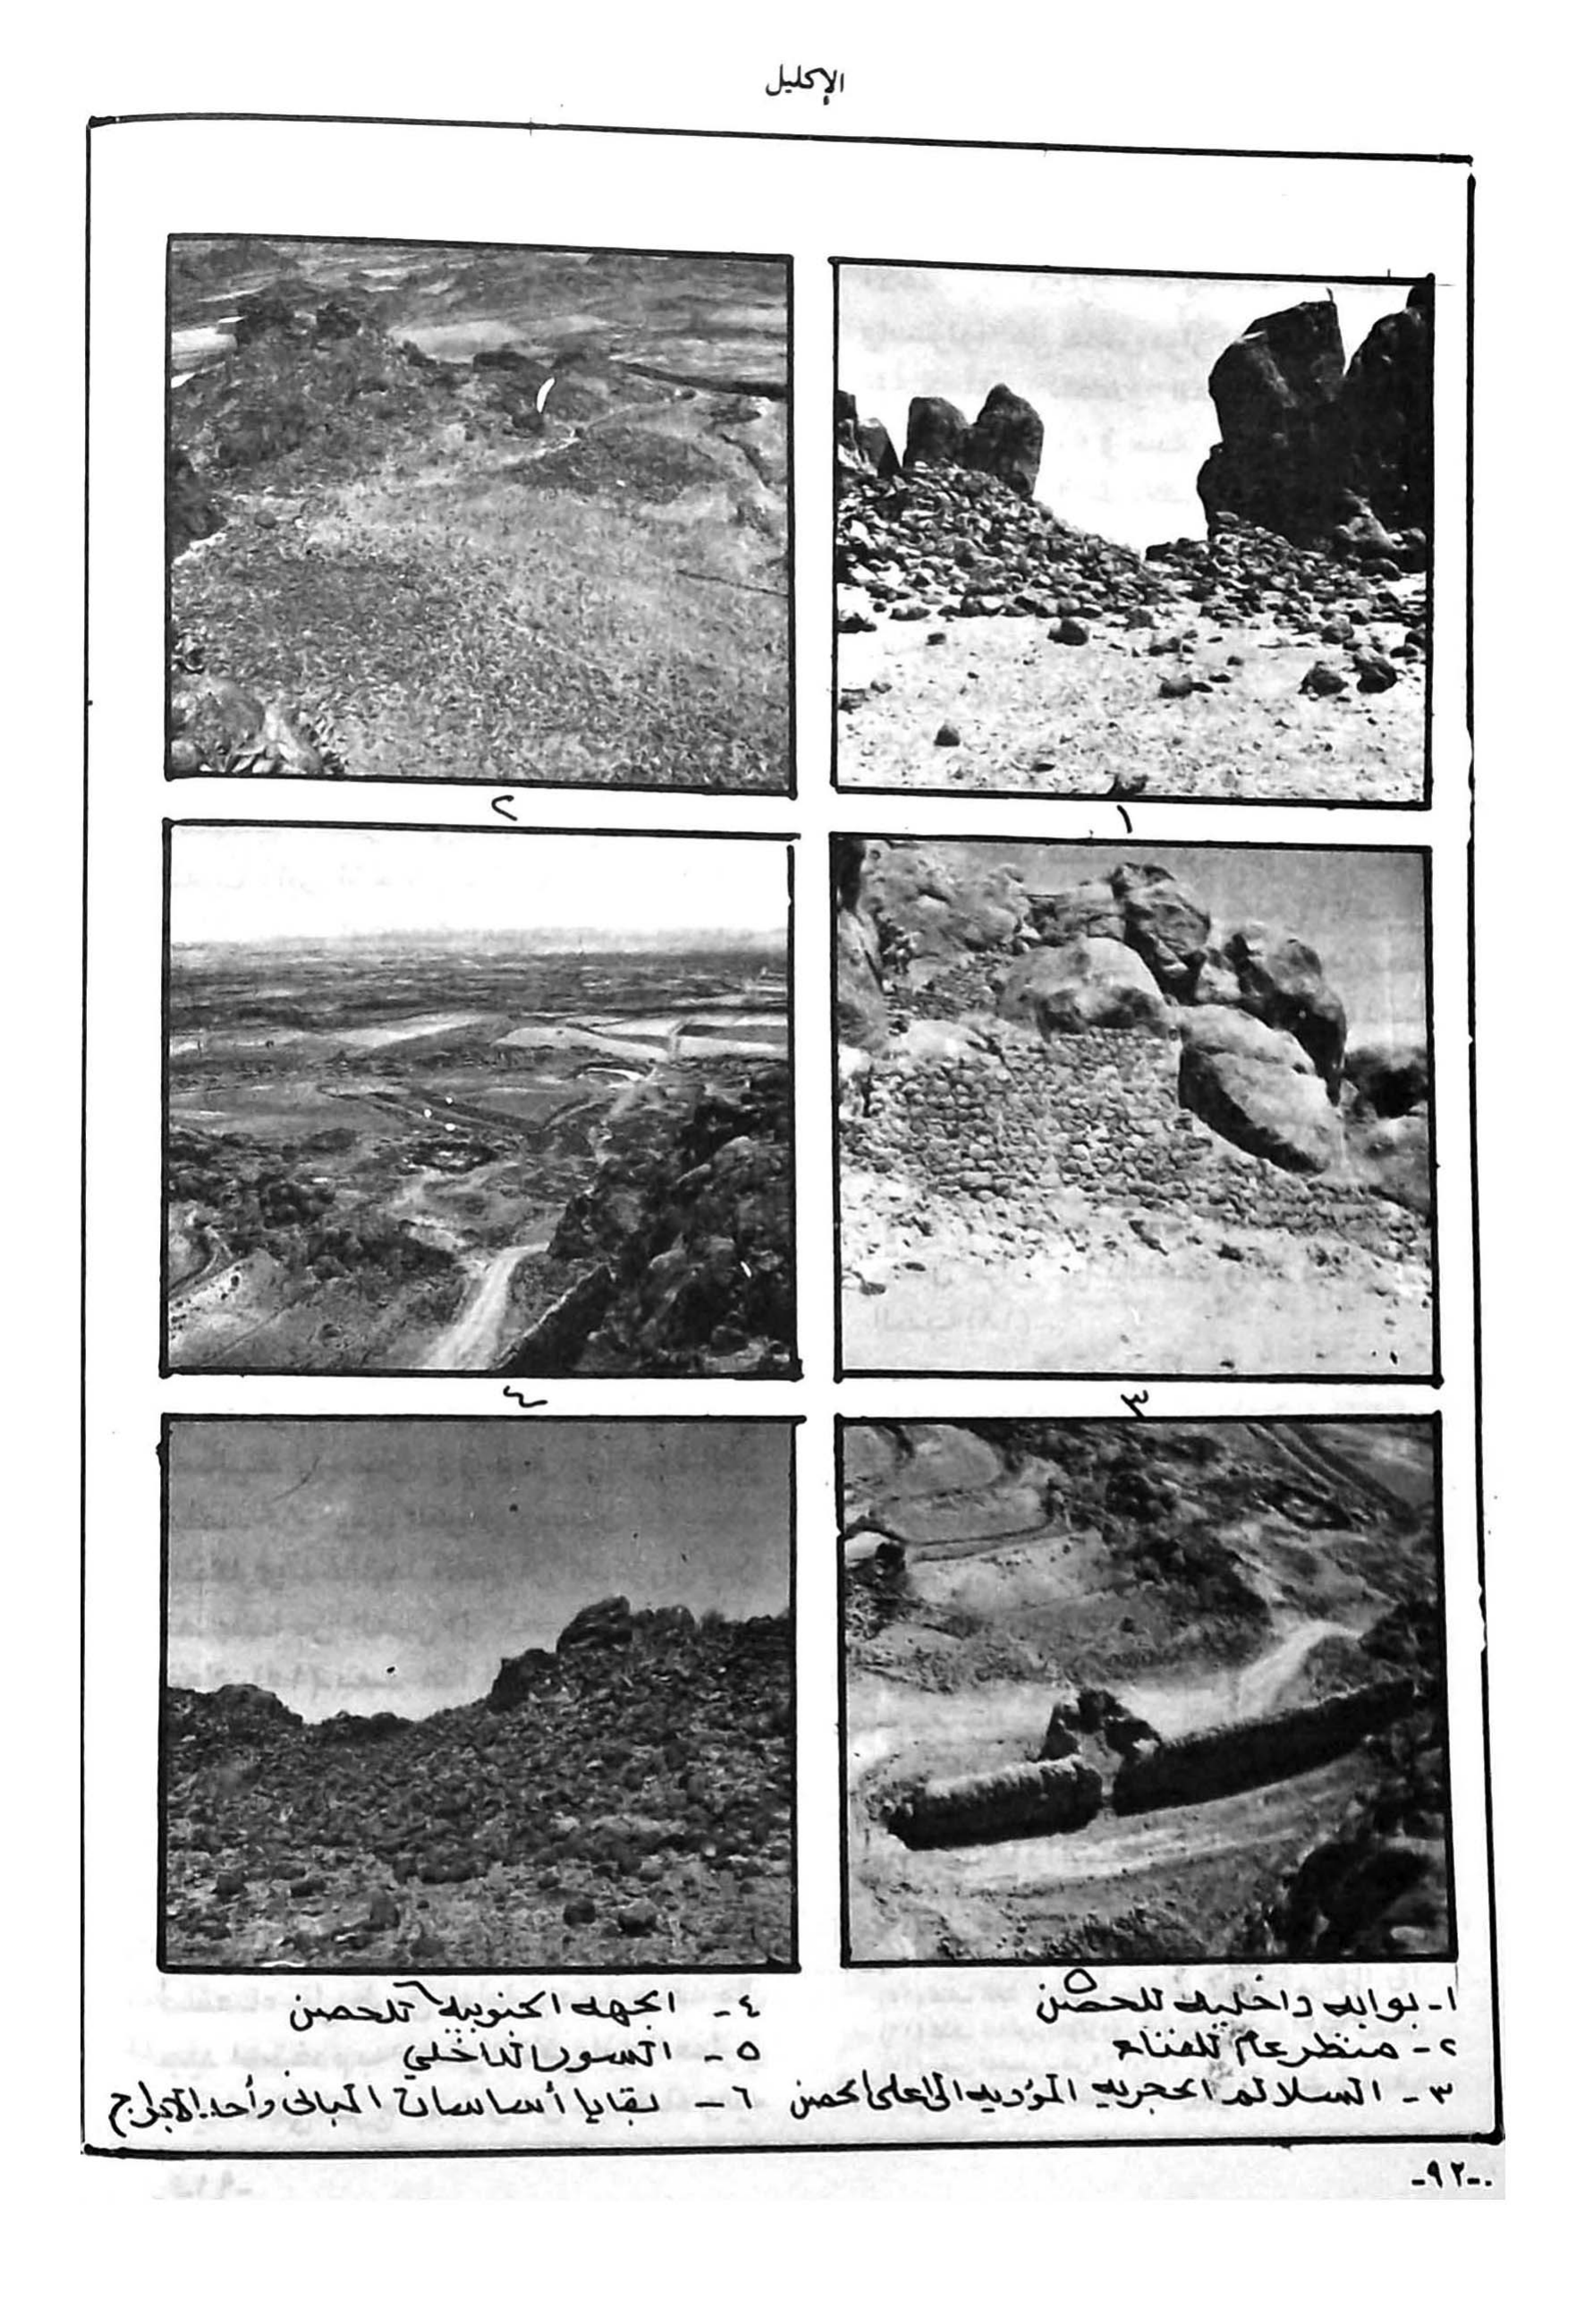 الإكليل
١
٢
٣
٤
٥
٦
١- بوابه داخليه للحصن
٢- منظر عام للفناء
٣- السلالم الحجريه المؤديه الى اعلى الحصن
٤- الجهه الجنوبيه للحصن
٥- السور الداخلي
٦- بقايا أساسات المباني وأحد الابراج
-٩٢-